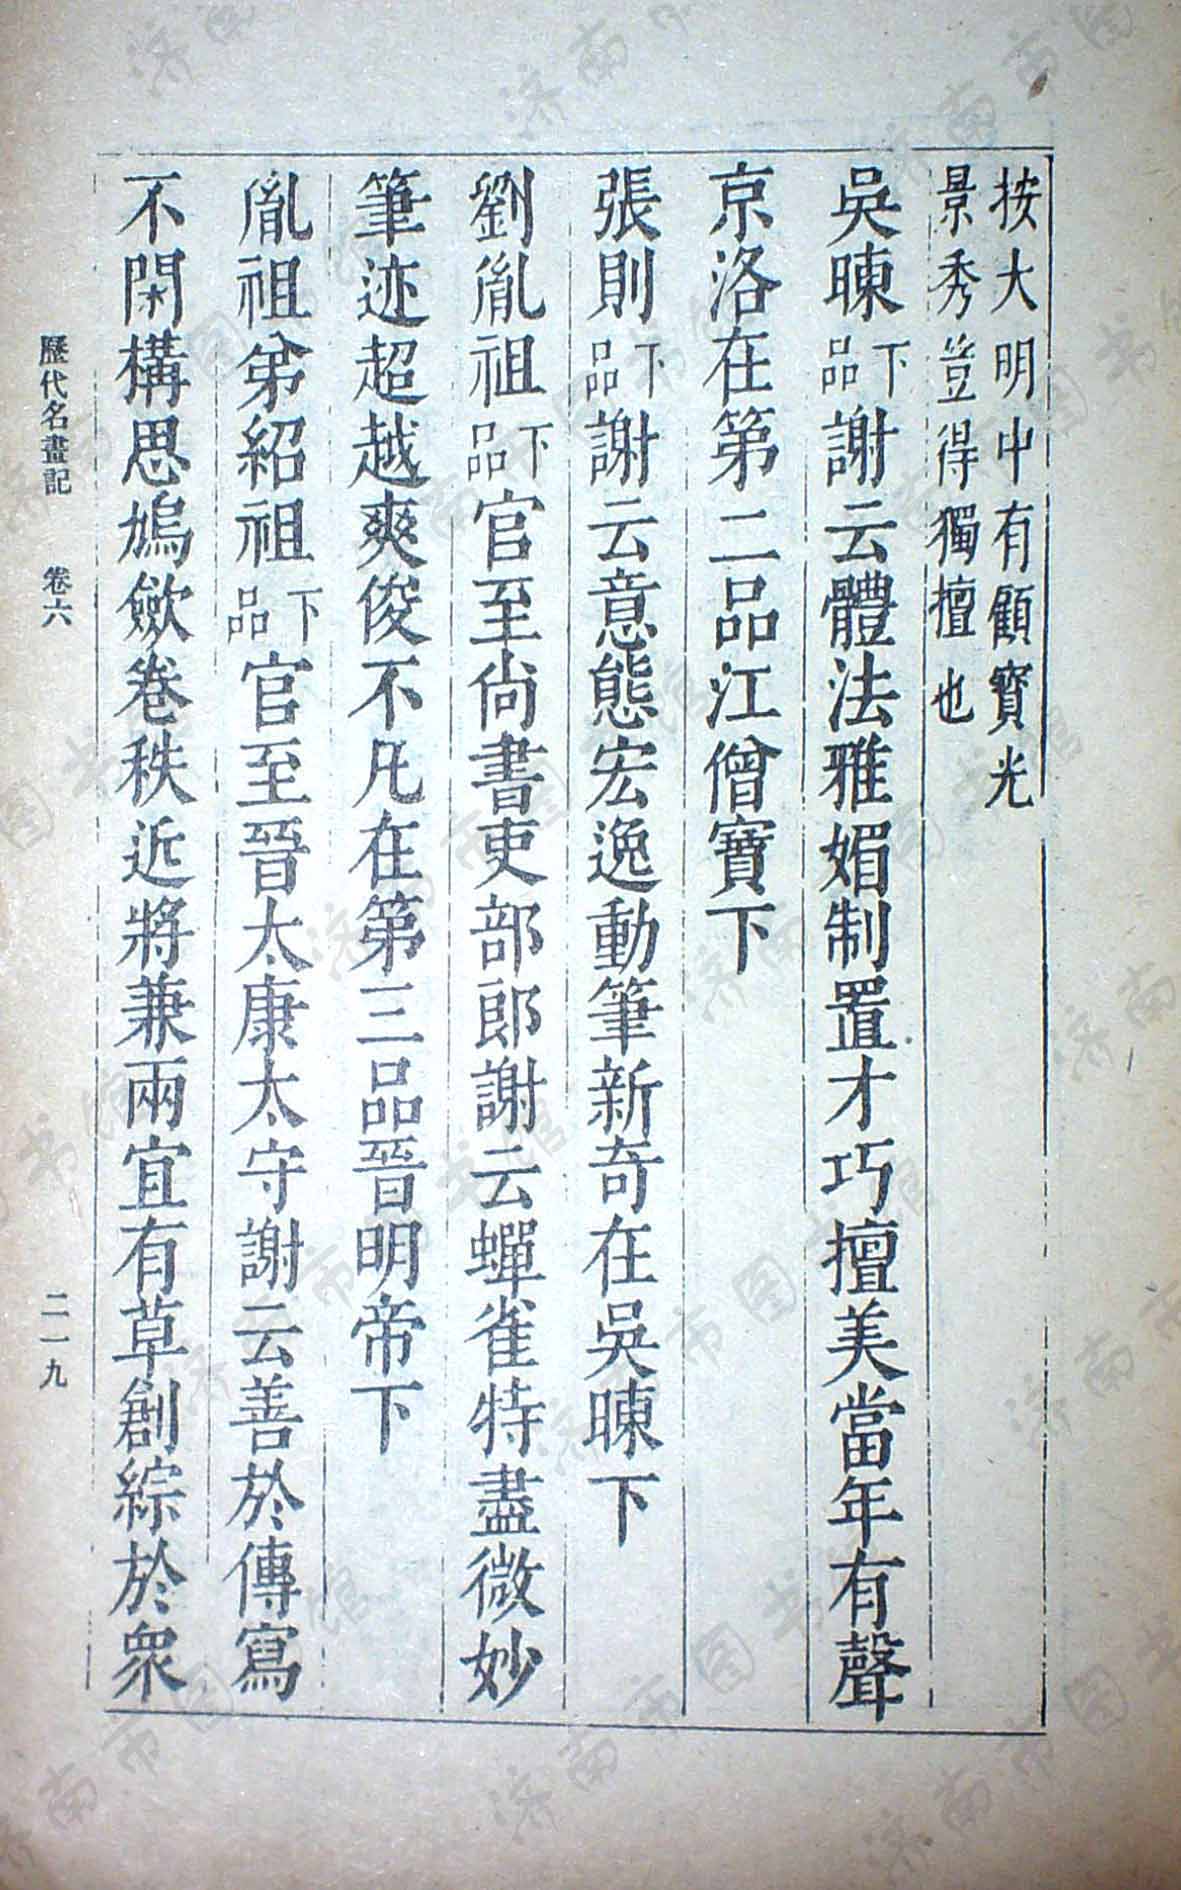 按大明中有顧寳光
景秀豈得獨擅也
吳暕下品謝云體法雅媚制置才巧擅美當年有聲
京洛在第二品江僧寶下
張則下品謝云意態宏逸動筆新奇在吳暕下
劉胤祖下品官至尚書吏部郎謝云蟬雀特盡微妙
筆迹超越爽俊不凡在第三品晉明帝下
胤祖弟紹祖下品官至晉太康太守謝云善於傳寫
不閑構思鳩斂卷秩近將兼兩宜有草創綜於衆
歷代名畫記 卷六 二一九
济南市图书馆